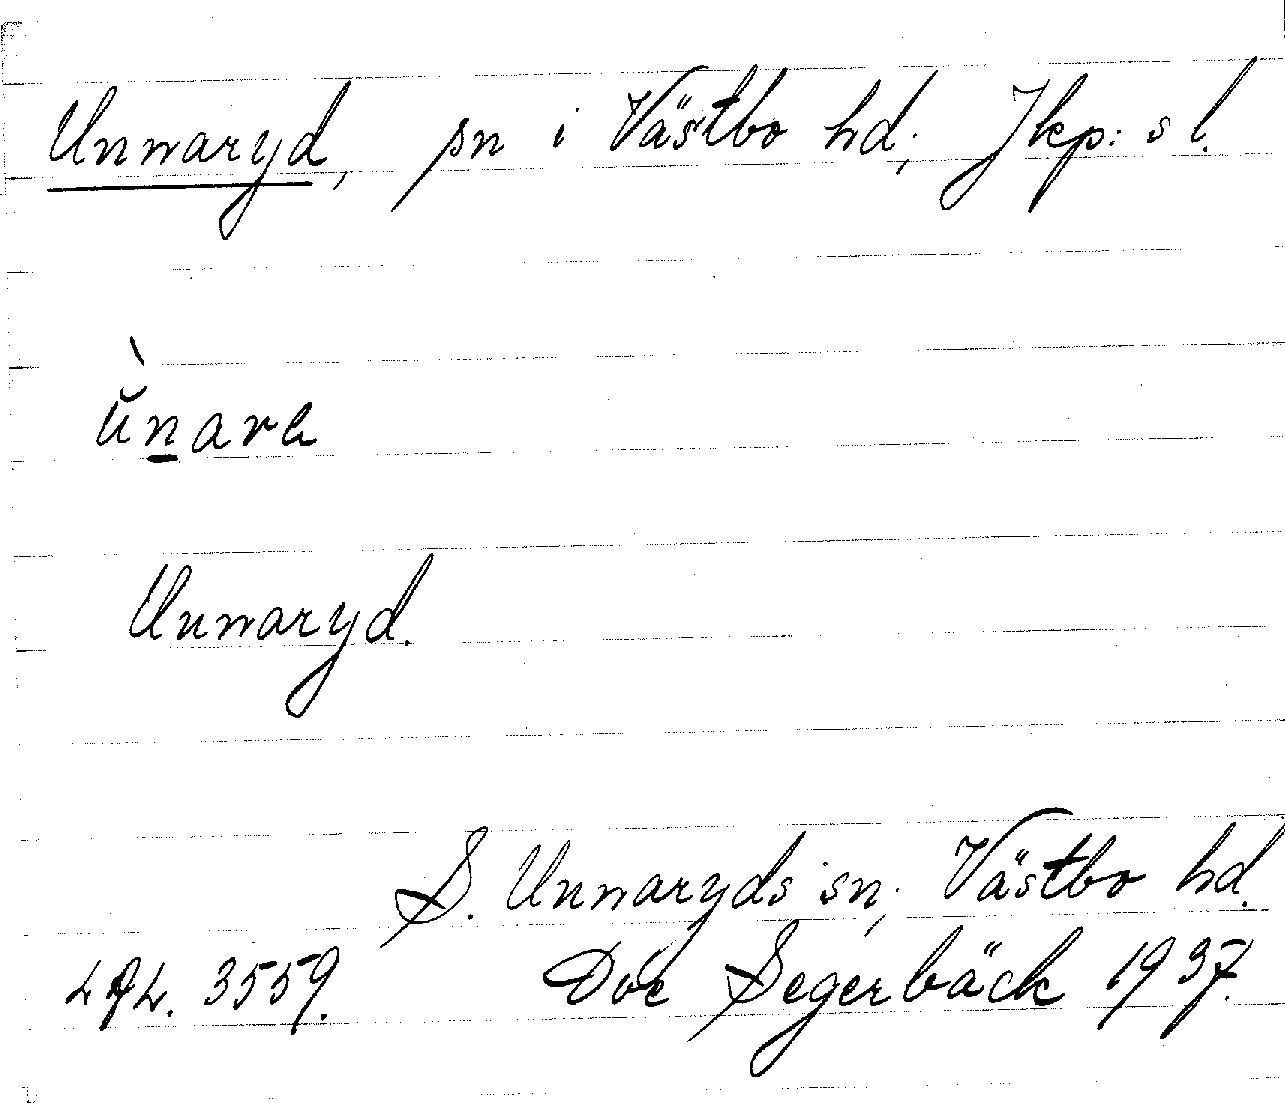 Unnaryd, sn i Västbo hd; Jkp:s l.
ŭ̀n̲ara
Unnaryd.
S. Unnaryds sn; Västbo hd.
Dve Segerbäck 1937.